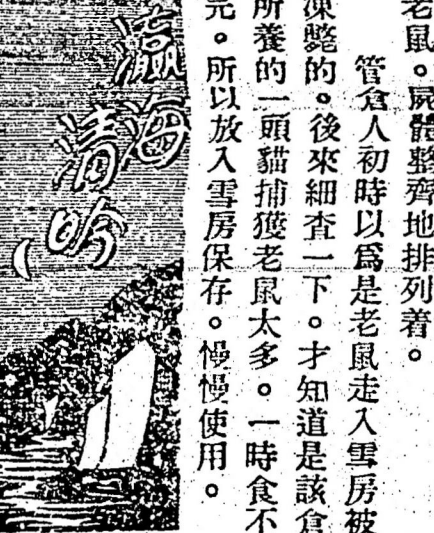 老鼠。屍體整齊地排列着。
管倉人初時以爲是老鼠走入雪房被
凍斃的。後來細查一下。才知道是該倉
所養的一頭貓捕獲老鼠太多。一時食不
完。所以放入雪房保存。慢慢使用。
瀛海
清吟